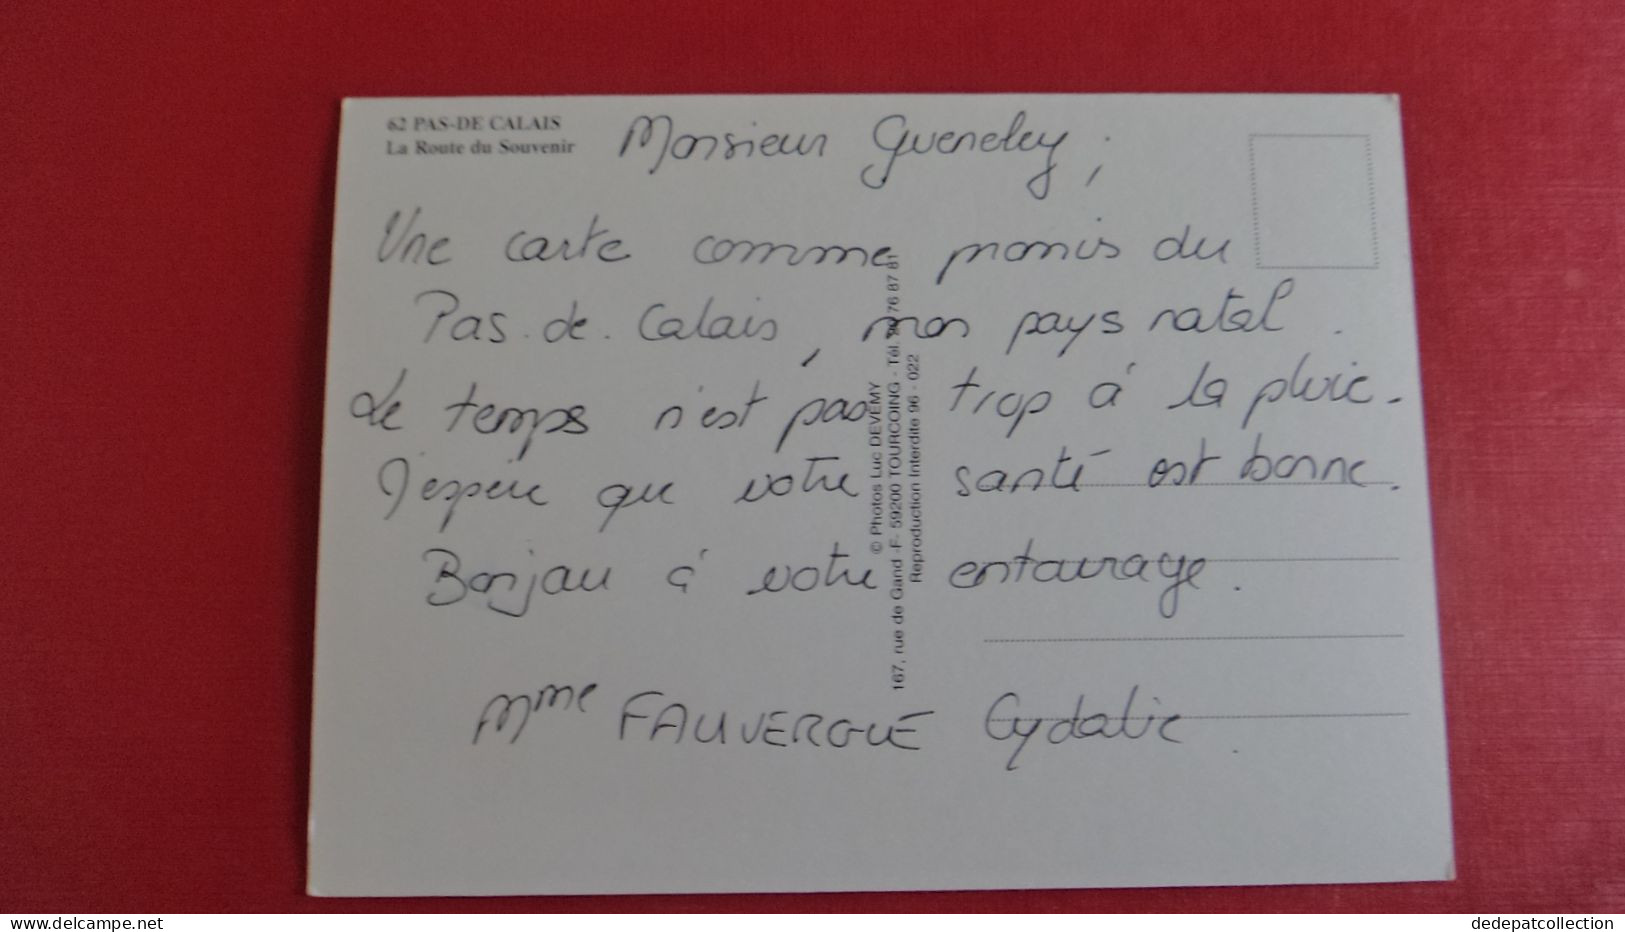 62 PAS-DE CALAIS
La Route du Souvenir
Monsieur Gueneley,
Une carte comme promis du
Pas-de-Calais, mon pays natal.
Le temps n'est pas trop à la pluie.
J'espère que votre santé est bonne.
Bonjour à votre entourage.
Mme FAUVERGUE Cydalie.
© Photos Luc DEVEMY
167, rue de Gand -F- 59200 TOURCOING - Tél. 76 87 81
Reproduction Interdite 96 - 022
www.delcampe.net
dedepatcollection